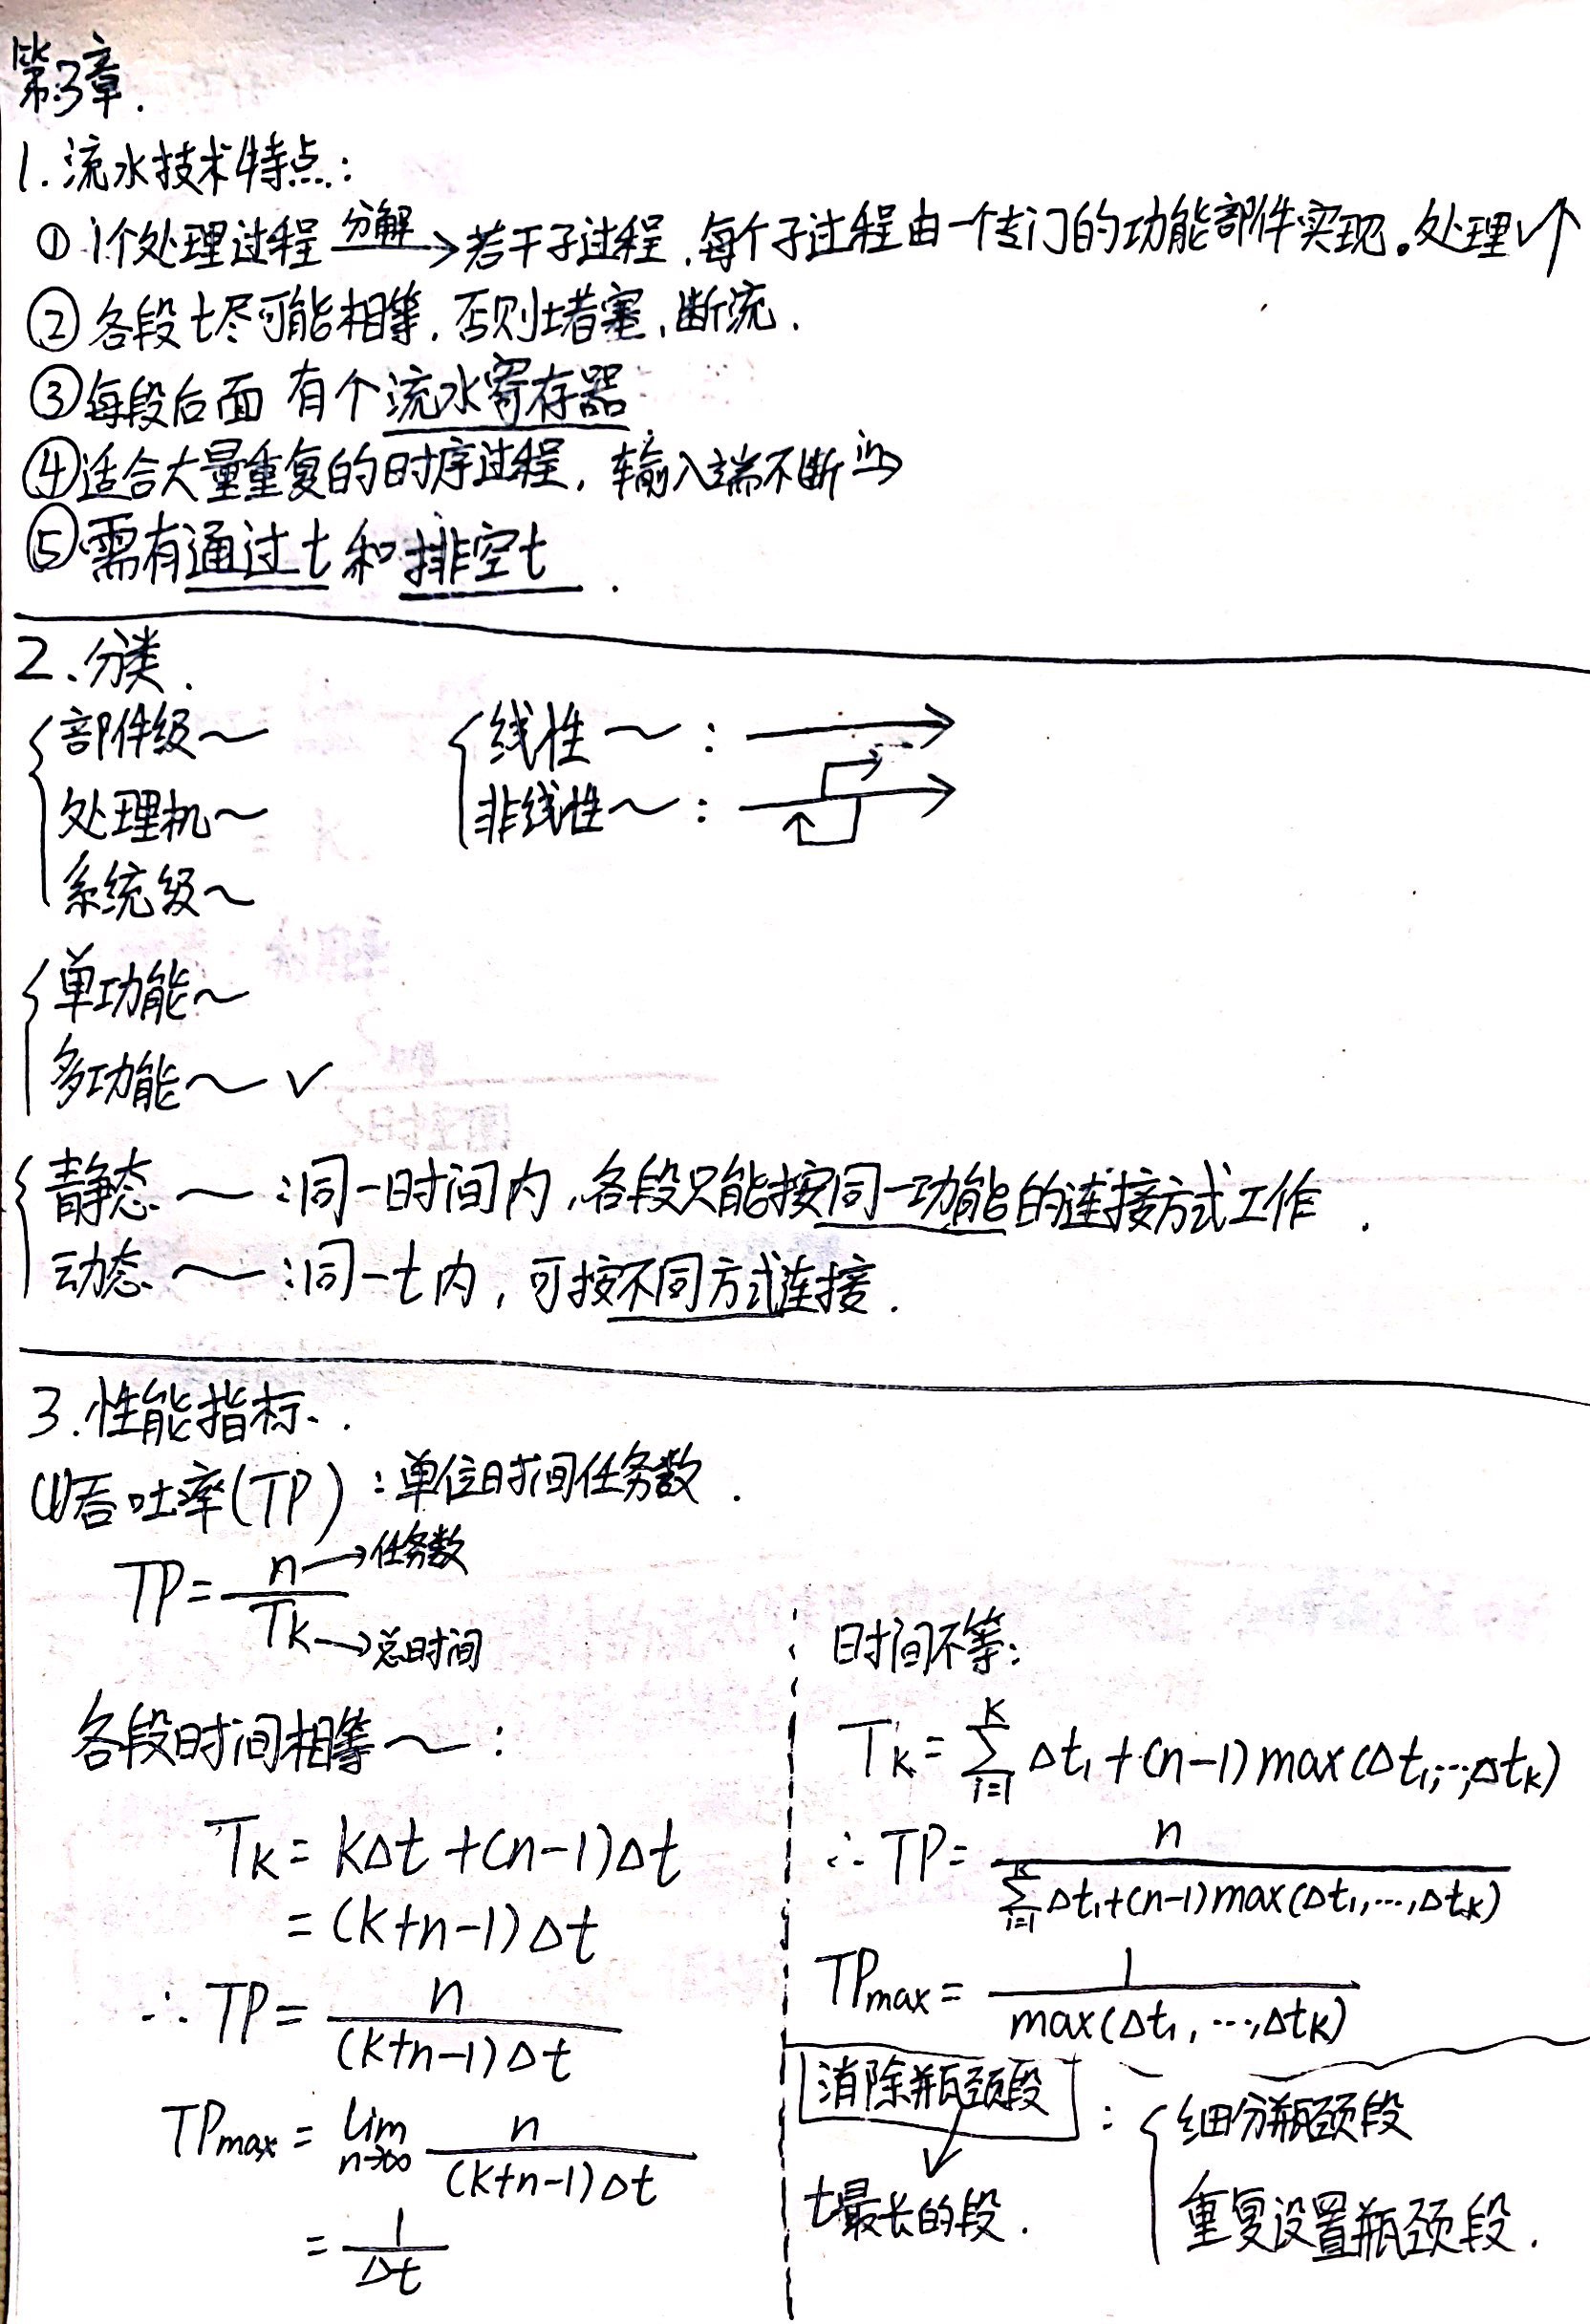 第3章.
1.流水技术特点:
① 1个处理过程 分解→ 若干子过程,每个子过程由一个专门的功能部件实现。处理v↑
② 各段t尽可能相等,否则堵塞,断流.
③ 每段后面 有个流水寄存器
④ 适合大量重复的时序过程,输入端不断
⑤ 需有通过t和排空t.
2.分类.
部件级~
处理机~
系统级~
线性~:
非线性~:
单功能~
多功能~ ✓
静态~:同一时间内,各段只能按同一功能的连接方式工作.
动态~:同一t内,可按不同方式连接.
3.性能指标.
(1)吞吐率(TP):单位时间任务数.
TP=n/Tk
n→任务数
Tk→总时间
各段时间相等~:
Tk=kΔt+(n-1)Δt
=(k+n-1)Δt
∴TP=n/((k+n-1)Δt)
TPmax=lim n→∞ n/((k+n-1)Δt)
=1/Δt
时间不等:
Tk=∑(i=1..k)Δt₁+(n-1)max(Δt₁,…,Δtk)
∴TP=n/(∑(i=1..k)Δt₁+(n-1)max(Δt₁,…,Δtk))
TPmax=1/max(Δt₁,…,Δtk)
消除瓶颈段:
t最长的段.
细分瓶颈段
重复设置瓶颈段.